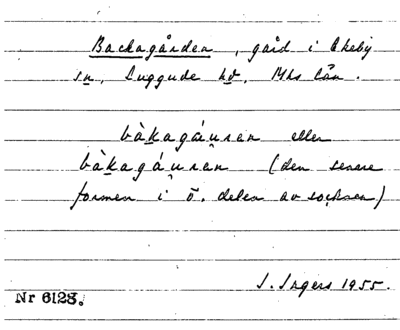 Backagården, gård i Ekeby
sn, Luggude hd, Mhs län.
bàkagáu̯ren eller
bàkagáu̯ren (den senare
formen i ö. delen av socknen)
I. Ingers 1955.
Nr 6128.